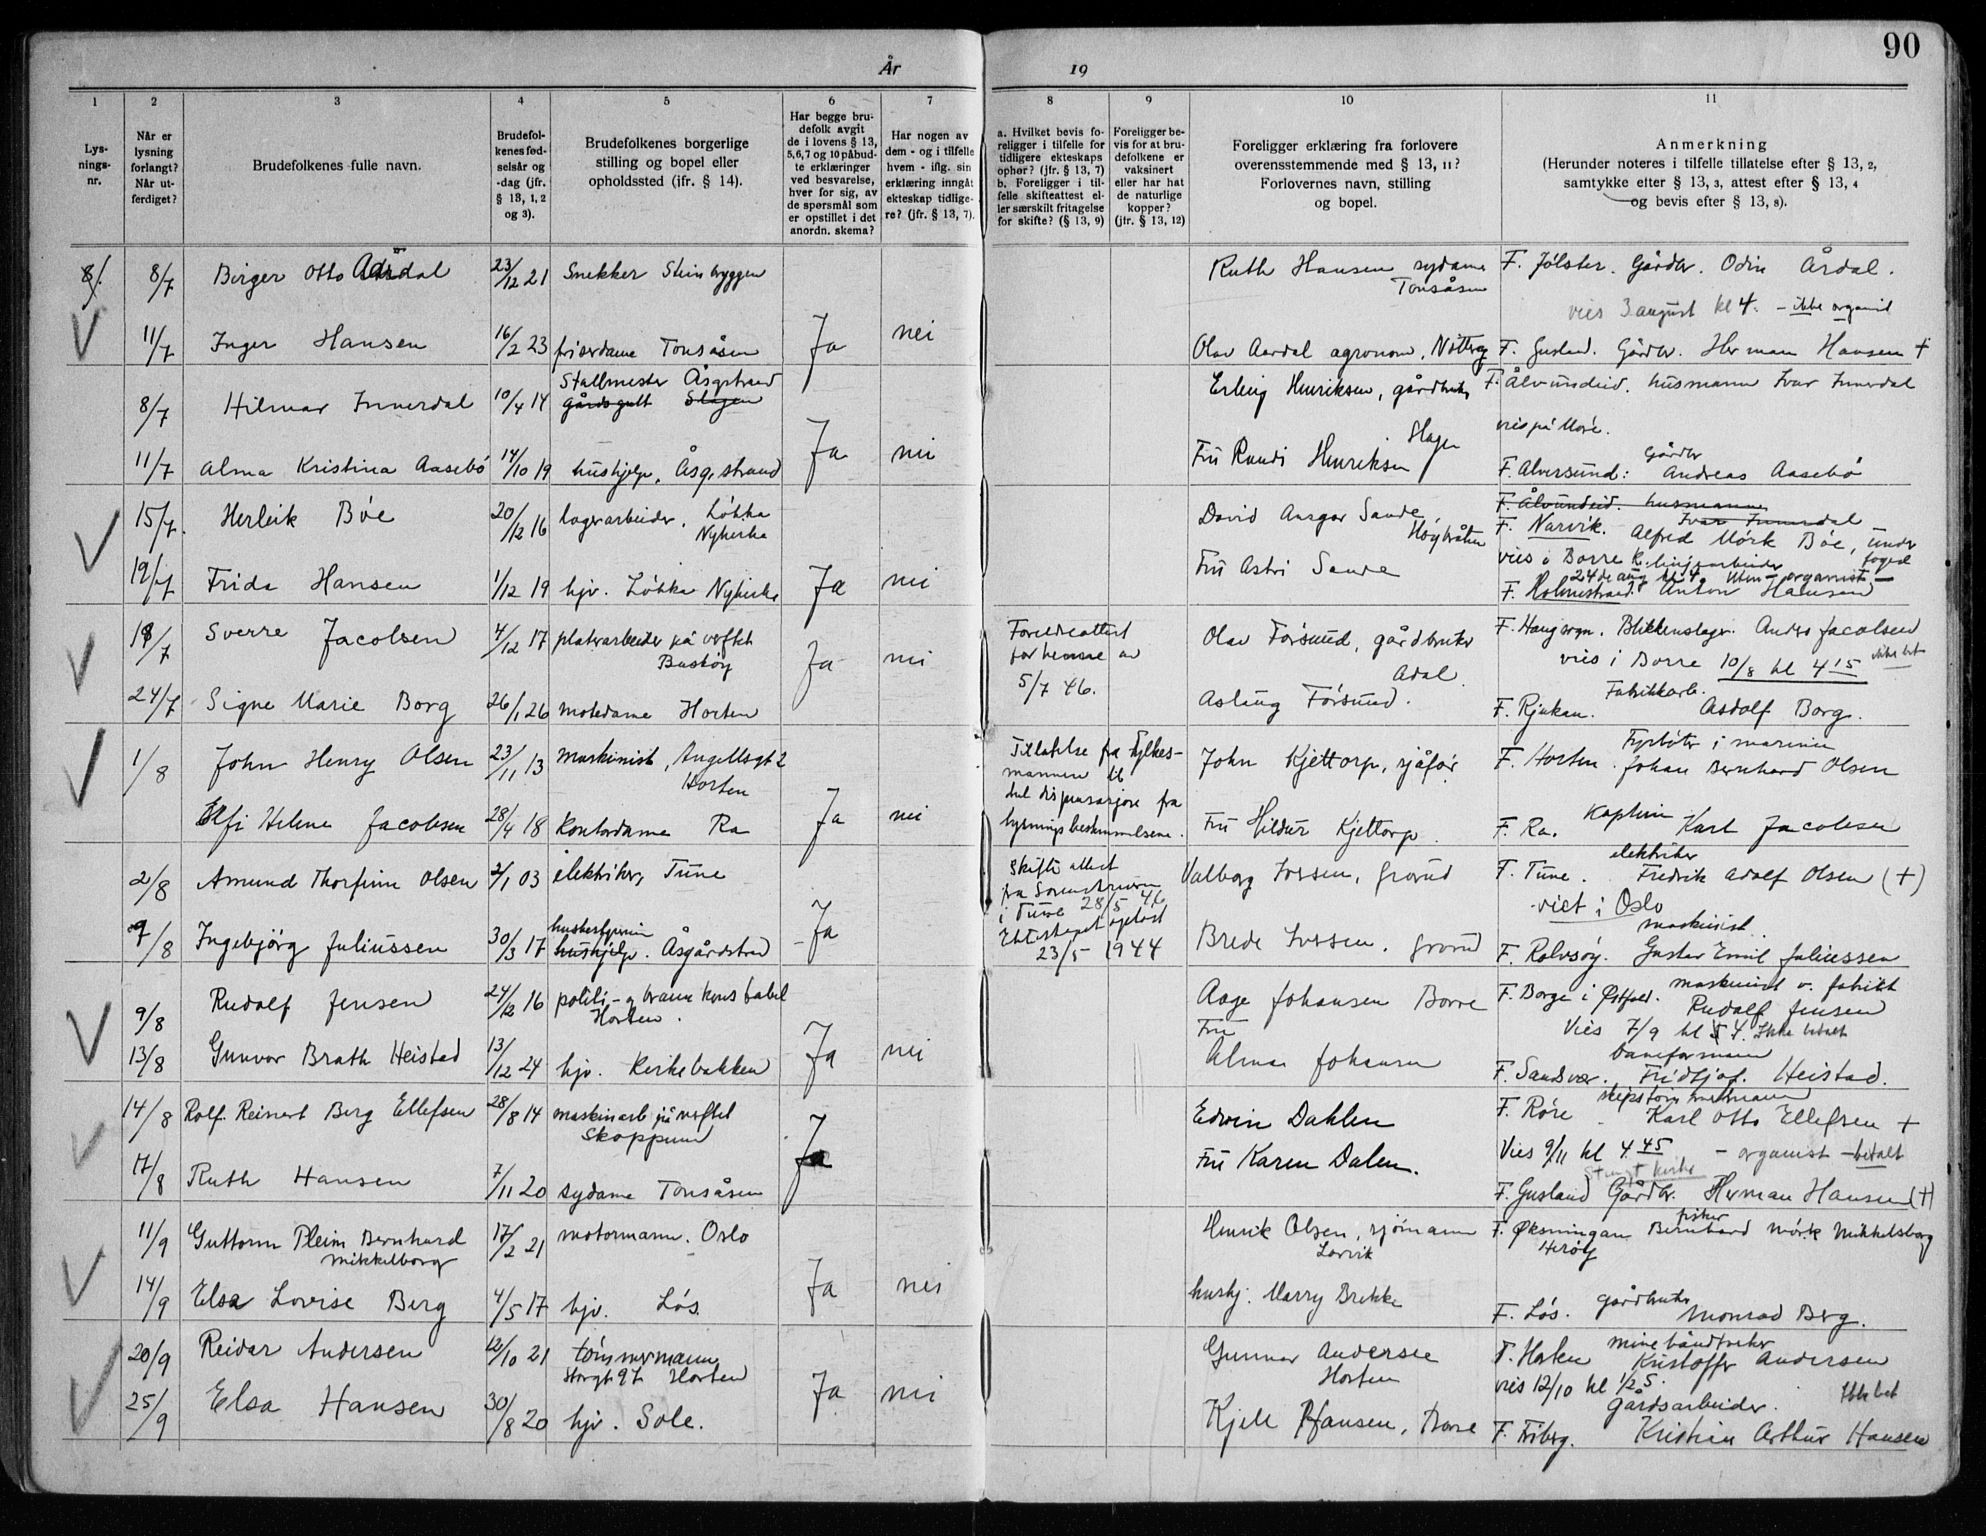 90
År
19
1
2
3
4
5
6
7
8
9
10
11
Lys-
nings-
nr.
Når er
lysning
forlangt?
Når ut-
ferdiget?
Brudefolkenes fulle navn.
Brudefol-
kenes fød-
selsår og
-dag (jfr.
§ 13, 1, 2
og 3).
Brudefolkenes borgerlige
stilling og bopel eller
opholdssted (jfr. § 14).
Har begge bru-
defolk avgit
de i lovens § 13,
5,6,7 og 10 påbud-
te erklæringer
ved besvarelse,
hver for sig, av
de spørsmål som
er opstillet i det
anordn. skema?
Har nogen av
dem - og i tilfelle
hvem - iflg. sin
erklæring inngått
ekteskap tidlige-
re? (jfr. § 13, 7).
a. Hvilket bevis fo-
religger i tilfelle for
tidligere ekteskaps
ophør? (jfr. § 13, 7)
b. Foreligger i til-
felle skifteattest el-
ler særskilt fritagelse
for skifte? (§ 13, 9)
Foreligger be-
vis for at bru-
defolkene er
vaksinert
eller har hat
de naturlige
kopper?
(jfr. § 13, 12)
Foreligger erklæring fra forlovere
overensstemmende med § 13, 11?
Forlovernes navn, stilling
og bopel.
Anmerkning
(Herunder noteres i tilfelle tillatelse efter § 13, 2,
samtykke efter § 13, 3, attest efter § 13, 4
og bevis efter § 13, 8).
8/7 Birger Otto Aardal 23/12 21 Snekker Steinbryggen Ruth Hansen sydame F. Jølster. Gårdbr. Odin Årdal.
Tonsåsen
vies 3 august kl 4. - ikke organist
11/7 Inger Hansen 16/2 23 frisørdame Tonsåsen Ja nei Olav Aardal agronom, Nøtterøy F. Gusland. Gårdbr. Herman Hansen +
Stallmester Åsgstrand
8/7 Hilmar Innerdal 10/4 14 gårdsgutt Slagen Erling Henriksen, gårdbruker F. Ålvundeid. husmann Ivar Innerdal
Slagen vies på Møre.
11/7 Alma Kristina Aasebø 14/10 19 hushjelp, Åsg.strand Ja nei Fru Randi Henriksen F. Alversund: Gårdbr Andreas Aasebø
F. Ålvundeid. husmann
Ivar Innerdal
15/7. Herleik Bøe 20/12 16 lagerarbeider, Løkka David Ansgar Sande F. Narvik. Alfred Mørk Bøe, under
Nykirke Høybråten foged
vies i Borre k. linjearbeider
24de aug kl 4. Uten organist
19/7 Frida Hansen 1/12 19 hjv. Løkka Nykirke Ja nei Fru Astri Sande F. Holmestrand. Anton Hansen
18/7 Sverre Jacobsen 4/12 17 platearbeider på verftet Ja nei Olav Førsund, gårdbruker F. Haugsogn. Blikkenslager. Anders Jacobsen
Bastøy Adal. vies i Borre 10/8 kl 4 15 ikke bet
5/7 46.
24/7 Signe Marie Borg 26/1 26 motedame Horten Aslaug Førsund. F. Rjukan. Fabrikkarb. Asdolf Borg.
1/8 John Henry Olsen 23/11 13 maskinist, Angellsgt 2 Tillatelse fra Fylkes- John Kjettorp, sjåfør F. Horten. Fyrbøter i marinen
Horten mannen til Johan Bernhard Olsen
del dispensasjon fra
Elfi Helene Jacobsen 28/4 18 Kontordame Ra Ja nei lysningsbestemmelsene. Fru Hildur Kjettorp. F. Ra. Kaptein Karl Jacobsen
2/8 Amund Thorfinn Olsen 2/1 03 elektriker, Tune Skifte attest Valborg Iversen, Grorud F. Tune. elektriker Fredrik Adolf Olsen (+)
fra Sorenskriveren
i Tune 28/5 46 viet i Oslo
husbestyrerinne Ekteskapet oppløst
9/8 Ingebjørg Juliussen 30/3 17 hushjelp. Åsgårdstrand Ja 23/5 1944 Brede Iversen. Grorud F. Rolvsøy. maskinist. Gustav Emil Juliussen
9/8 Rudolf Jensen 24/12 16 politi- og brannkonstabel Aage Johansen Borre F. Borge i Østfold. maskinist v. fabrikk
Horten. Rudolf Jensen
Vies 7/9 kl 4. Ikke betalt
13/8 Gunvor Brath Heistad 13/12 24 hjv. Kirkebakken Ja nei Fru Alma Johansen F. Sandsvær. baneformann Fridtjof. Heistad.
14/8 Rolf Reinert Berg Ellefsen 28/8 14 maskinarb på verftet Edwin Dahlen F. Røre skipstømmermann
Skoppum Karl Otto Ellefsen +
Vies 9/11 kl 4 45 - organist - betalt
17/8 Ruth Hansen 7/11 20 sydame Tonsåsen Ja Fru Karen Dalen. F. Gusland Gårdbr. Herman Hansen (+)
11/9 Guttorm Pleim Bernhard 17/2 21 motormann. Oslo Henrik Olsen, sjømann F. Øksningan fisker Bernhard Mørk Mikkelsborg
Mikkelborg Larvik Herøy
14/9 Elsa Lovise Berg 4/5 17 hjv. Løs. Ja nei hushj. Marry Brekke F. Løs. gårdbruker Monrad Berg.
20/9 Reidar Andersen 12/10 21 tømmermann Gunnar Andersen F. Horten minebåndtreker
Storgt 97 Horten Horten Kristoffer Andersen
vies 12/10 kl 1/2 5. Ikke bet
25/9 Elsa Hansen 30/8 20 hjv. Sole. Ja nei Kjell Hansen, Borre F. Friberg. Gårdsarbeider. Kristian Arthur Hansen